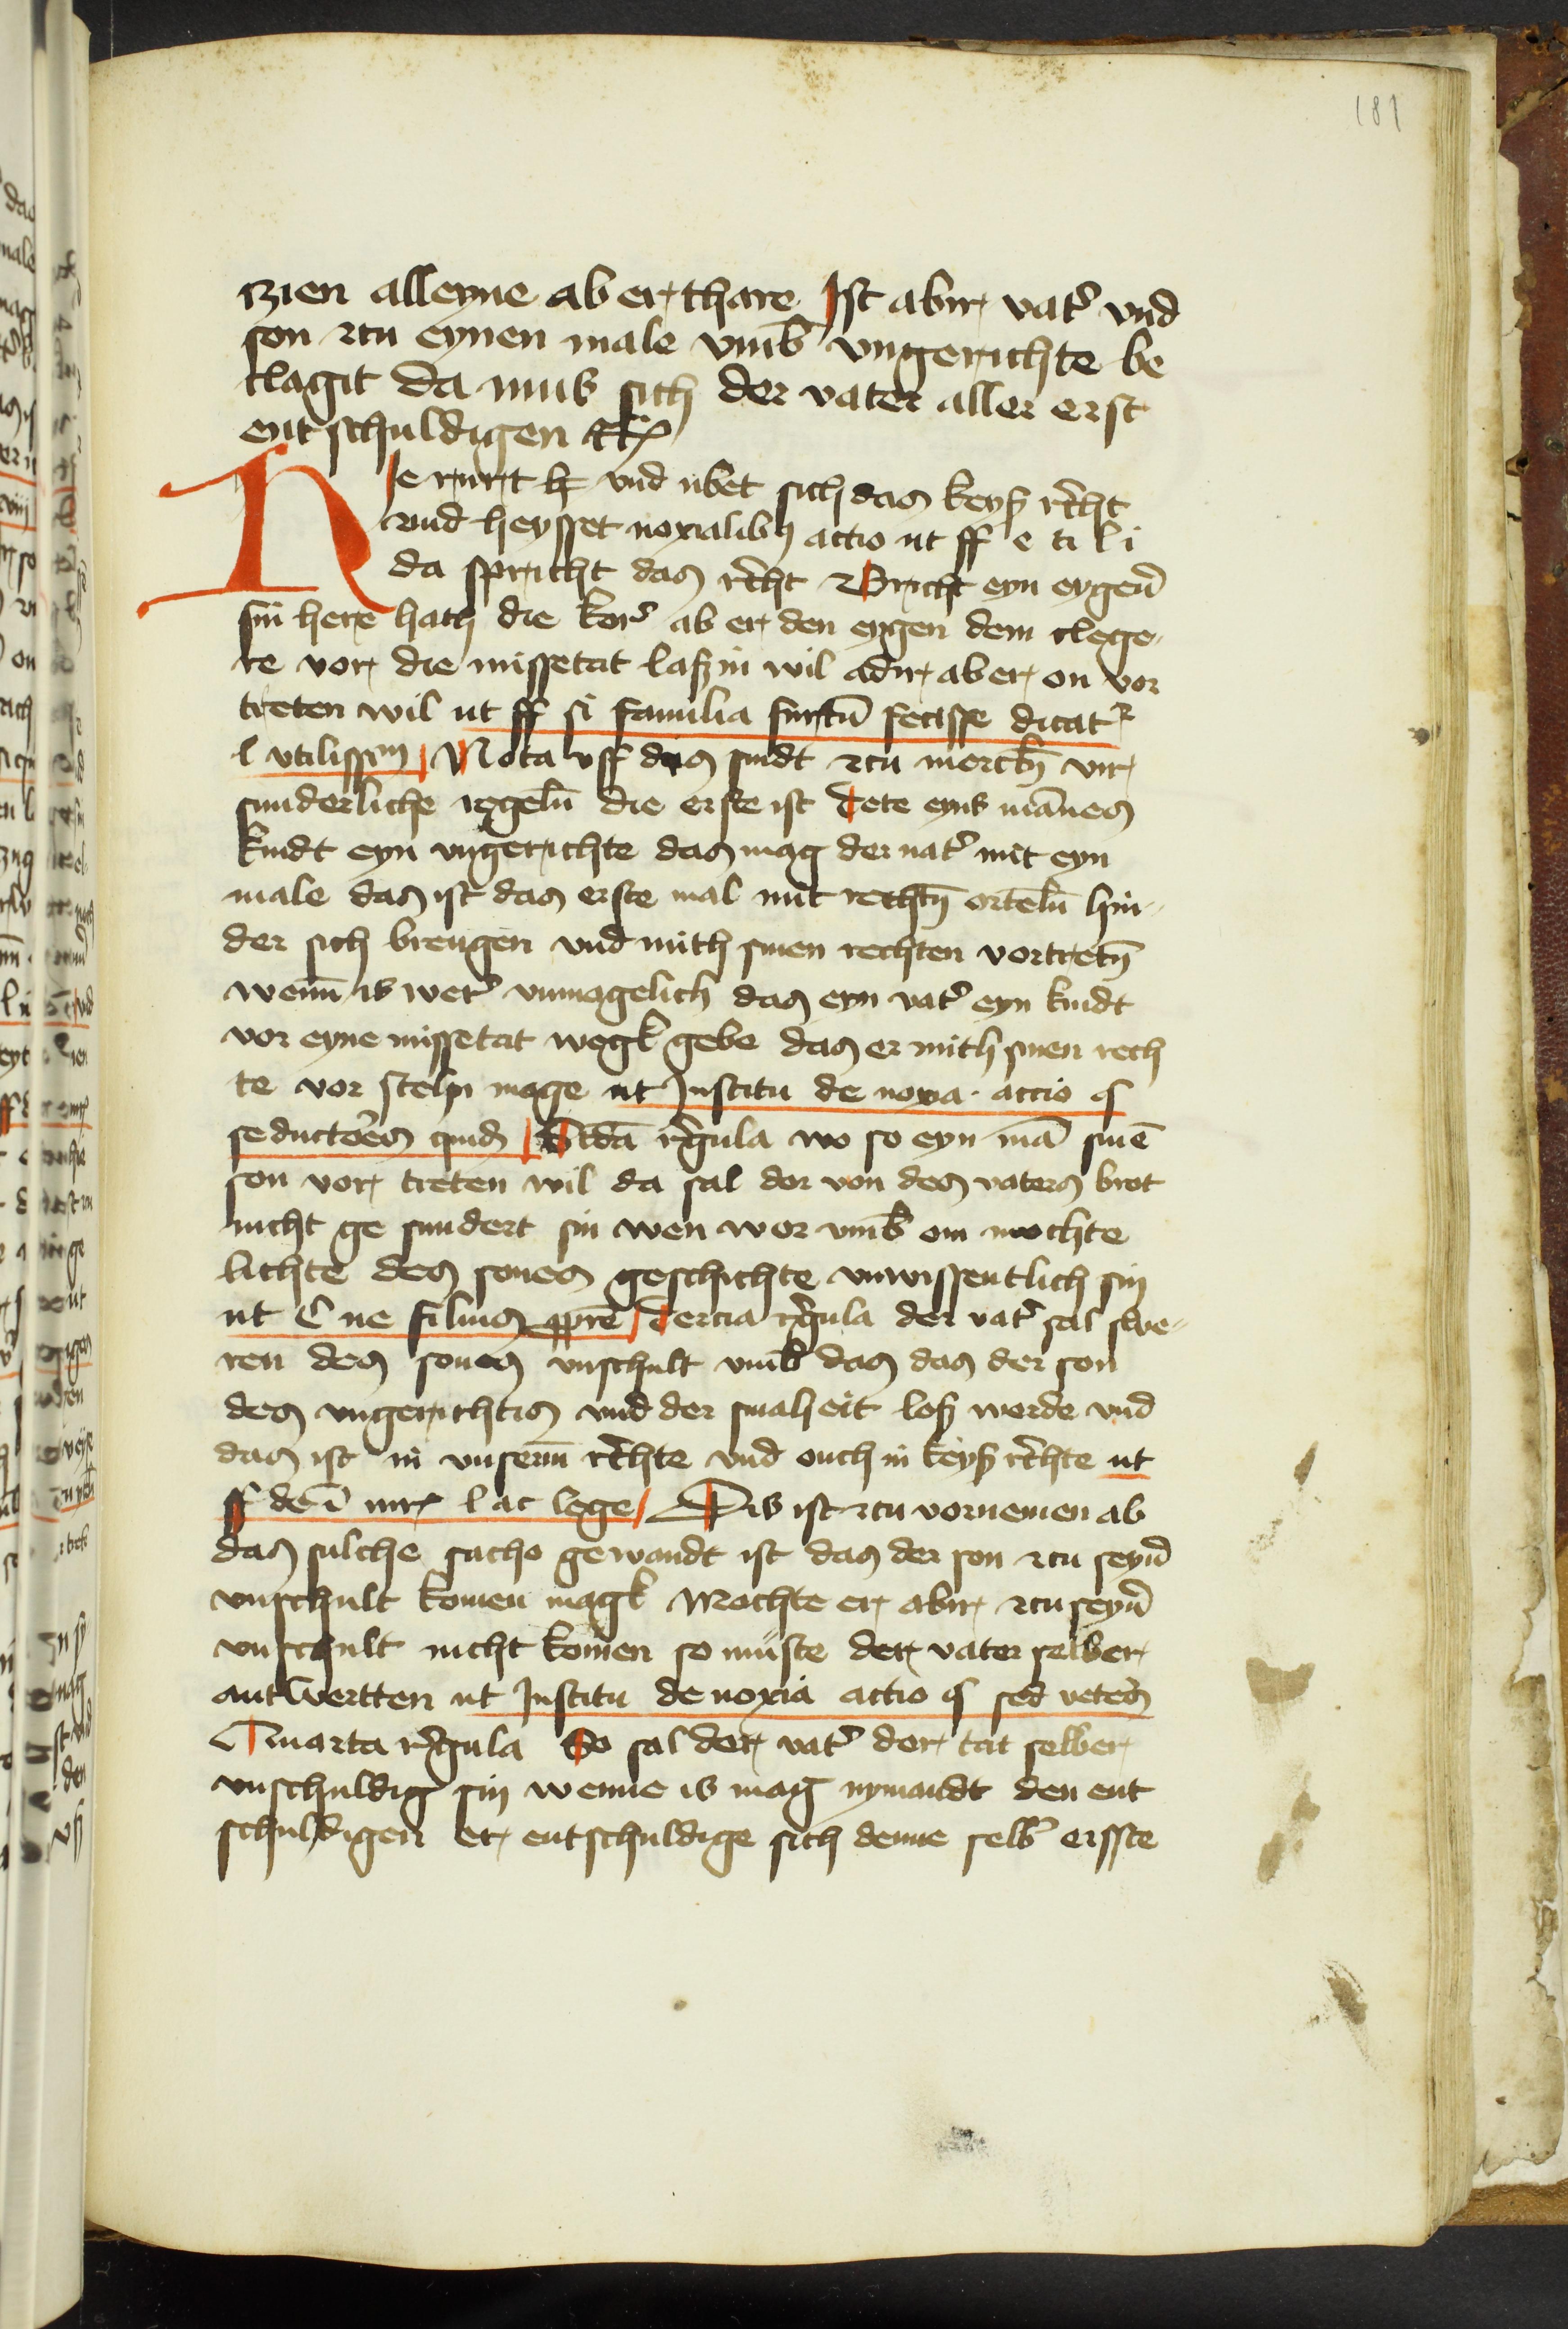 181
czien alleyne ab er thare Ist abir vat' vnd
son czu eynen male vmb vngerichte be
clagit da mus sich der vater aller erst
entschuldigen etc
Hie rurt h' vnd ubet sich das keyß r'cht
vnd heysset noxialibus actio ut ff e ti l i
da spricht das r'cht Bricht eyn eygen'
sin here hath die kor' ab er den eygen dem clege
re vor die missetat laß in wil adir ab er on vor
treten wil ut ff si familia furtu fecisse dicat'
l vtilissm Nota vff das sindt czu merckn vir
sunderliche regeln die erste ist Tete eyns mānes
kindt eyn vngerichte das mag der vat' mit eyn
male das ist das erste mal mit rechtn orteln hin
der sich brengen vnd mith sinen rechten vortretn
wenn is wer' vnmogelich das eyn vat' eyn kindt
vor eyne missetat wegk gebe das er mith sinen rech
te vor steln moge ut Institu de noxa actio §
sed uctōes quid Scda r'gula wo so eyn mā sinē
son vor treten wil da sal der von des vaters brot
nicht ge sundert sin wen wor vmb om mochte
lichte des sones geschichte vnwissentlich sin
ut C ne filius ꝓprē Tercia r'gula der vat' sal swe
ren des sones vnschult vmb das das der son
des vngerichtis vnd der smaheit loß werde vnd
das ist in vnserm r'chte vnd ouch in keyß r'chte ut
ff deī iur l ac lege Dis ist czu vornemen ab
das sulche sache gewandt ist das der son czu seyn'
vnschult komen magk Mochte er abir czu seyn'
vnschult nicht komen so muste der vater selber
antwertten ut Institu de noxia actio § sed vetes
Quarta r'gula So sal der vat' der tat selber
vnschuldig sin wenne is mag nymandt den ent
schuldigen er entschuldige sich denne selb' erste